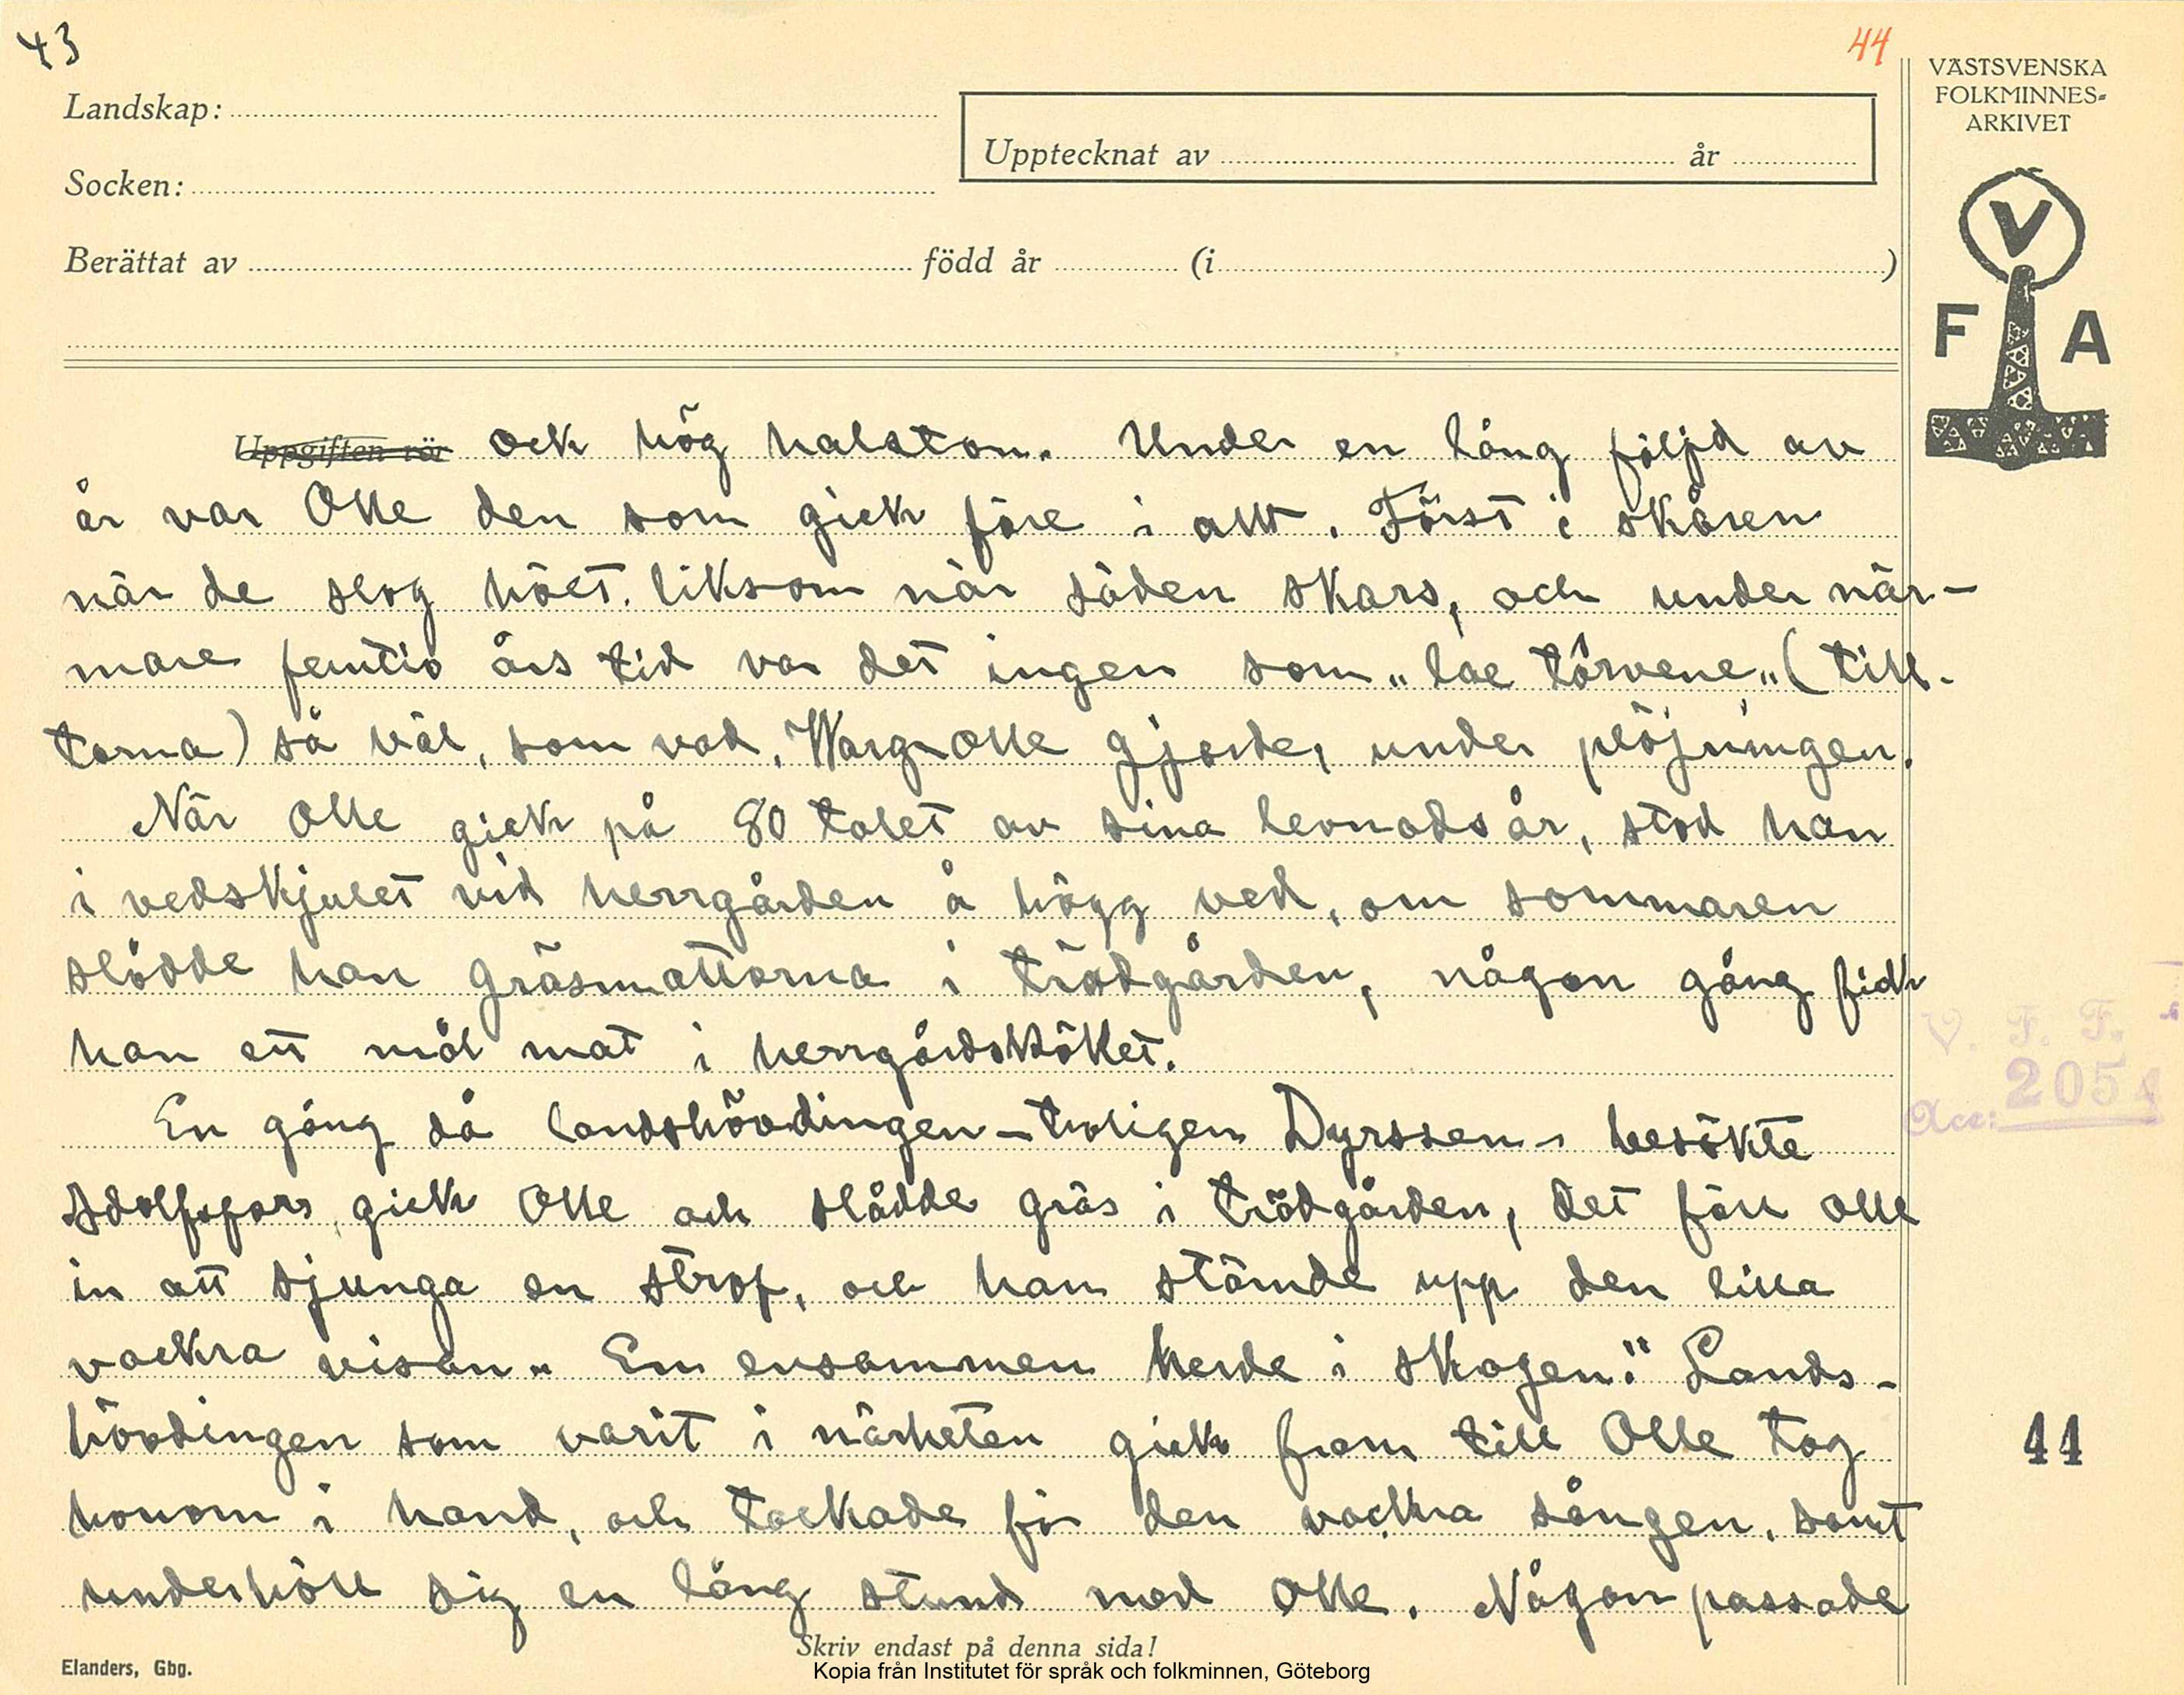 43
44
VÄSTSVENSKA
FOLKMINNES-
ARKIVET
Landskap:
Upptecknat av år
Socken:
Berättat av född år (i )
V
F A
Uppgiften rör ock hög halston. Under en lång följd av
år var Olle den som gick före i allt. Först i skåren
när de slog höet. liksom när säden skars, och under när-
mare femtio års tid var det ingen som "lae tôrvene" (till-
torna) så väl, som vad, Warg-Olle gjorde, under plöjningen.
När Olle gick på 80 talet av sina levnadsår, stod han
i vedskjulet vid herrgården å högg ved, om sommaren
slådde han gräsmattorna i trädgården, någon gång fick
han ett mål mat i herrgårdsköket.
En gång då landshövdingen - troligen Dyrssen - besökte
Adolfsfors, gick Olle och slådde gräs i trädgården, det föll Olle
in att sjunga en strof, och han stämde upp den lilla
vackra visan "En ensammen herde i skogen." Lands-
hövdingen som varit i närheten gick fram till Olle tog
honom i hand, och tackade för den vackra sången, samt
underhöll sig en lång stund med Olle. Någon passade
V. F. F.
Acc: 2054
44
Skriv endast på denna sida!
Elanders, Gbg.
Kopia från Institutet för språk och folkminnen, Göteborg